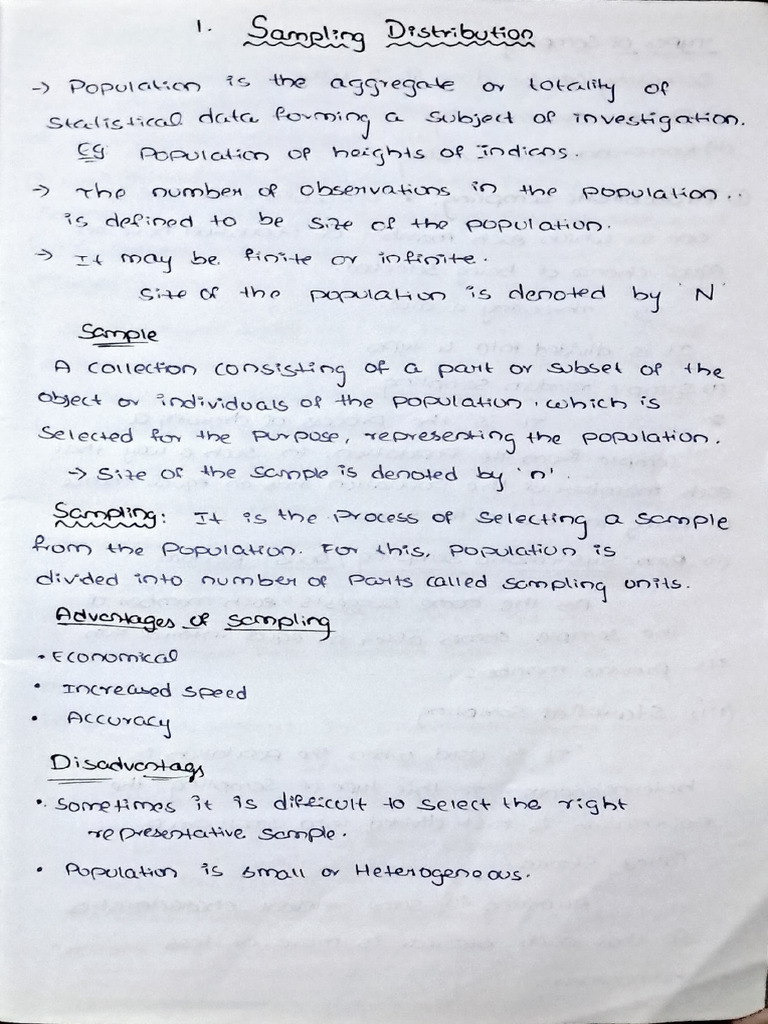 1. Sampling Distribution
→ Population is the aggregate or totality of
statistical data forming a subject of investigation.
Eg Population of heights of Indians.
→ The number of observations in the population..
is defined to be size of the population.
→ It may be finite or infinite.
Size of the population is denoted by 'N'
Sample
A collection consisting of a part or subset of the
object or individuals of the population. which is
selected for the purpose, representing the population.
→ Size of the sample is denoted by 'n'.
Sampling: It is the process of selecting a sample
from the population. For this, population is
divided into number of parts called sampling units.
Advantages of sampling
• Economical
• Increased speed
• Accuracy
Disadvantags
• Sometimes it is difficult to select the right
representative sample.
• Population is small or Heterogeneous.